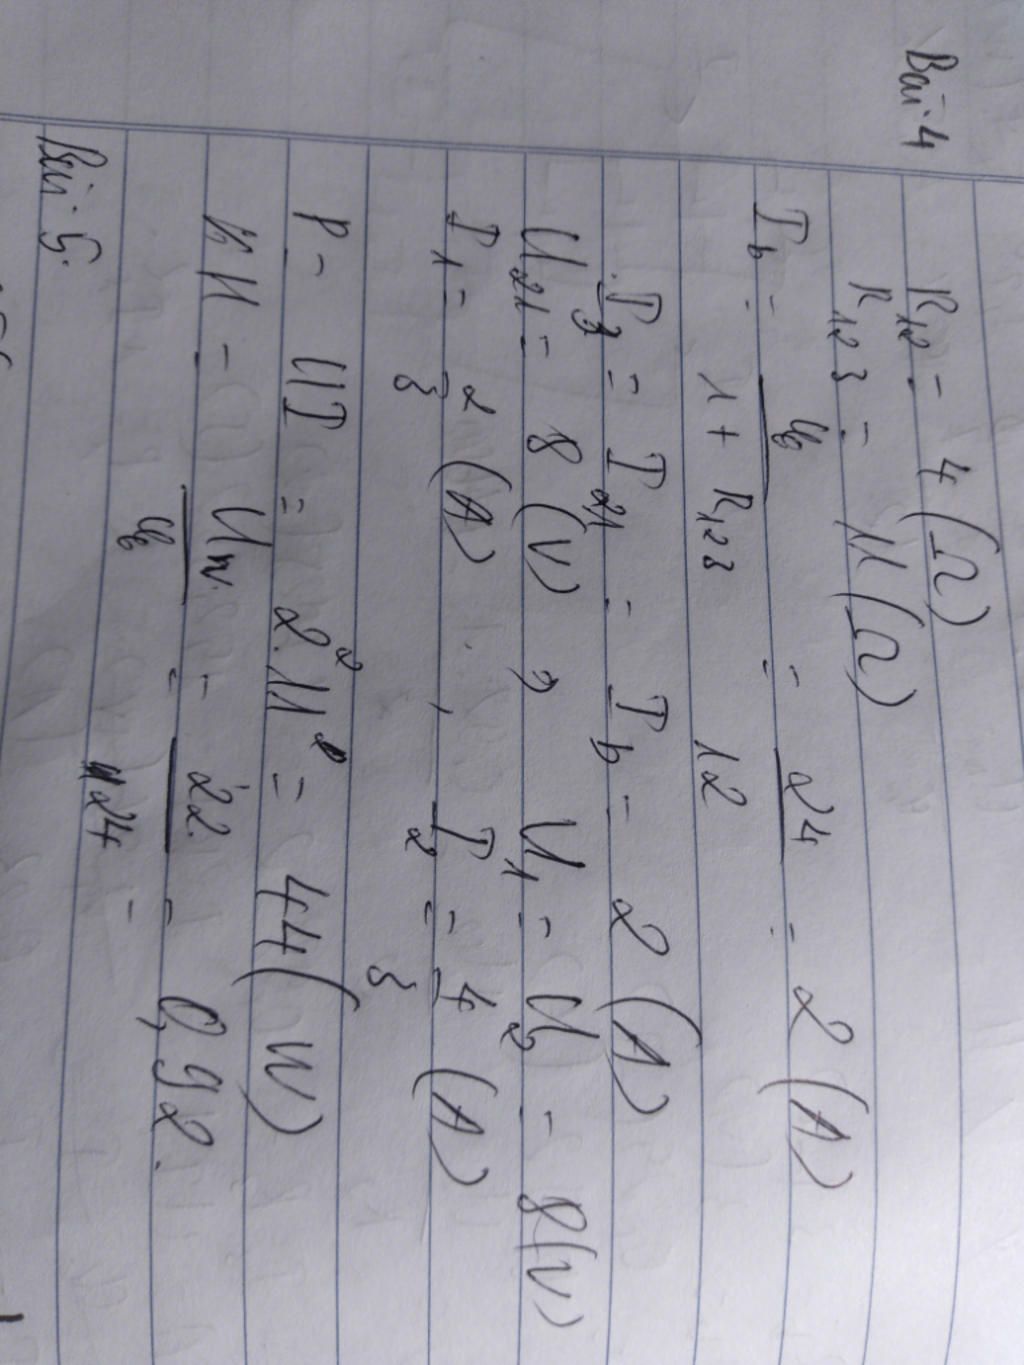 Bài 4
R12 = 4 (Ω)
R123 = 11 (Ω)
Ib = Ub / 1 + R123 = 24 / 12 = 2 (A)
I3 = I21 = Ib = 2 (A)
U21 = 8 (V) , U1 = U2 = 8 (V)
I1 = 2/3 (A) , I2 = 4/3 (A)
P = UI = 2².11 = 44 (W)
H = UN / Ub = 22 / 24 = 0,92.
Bài 5.